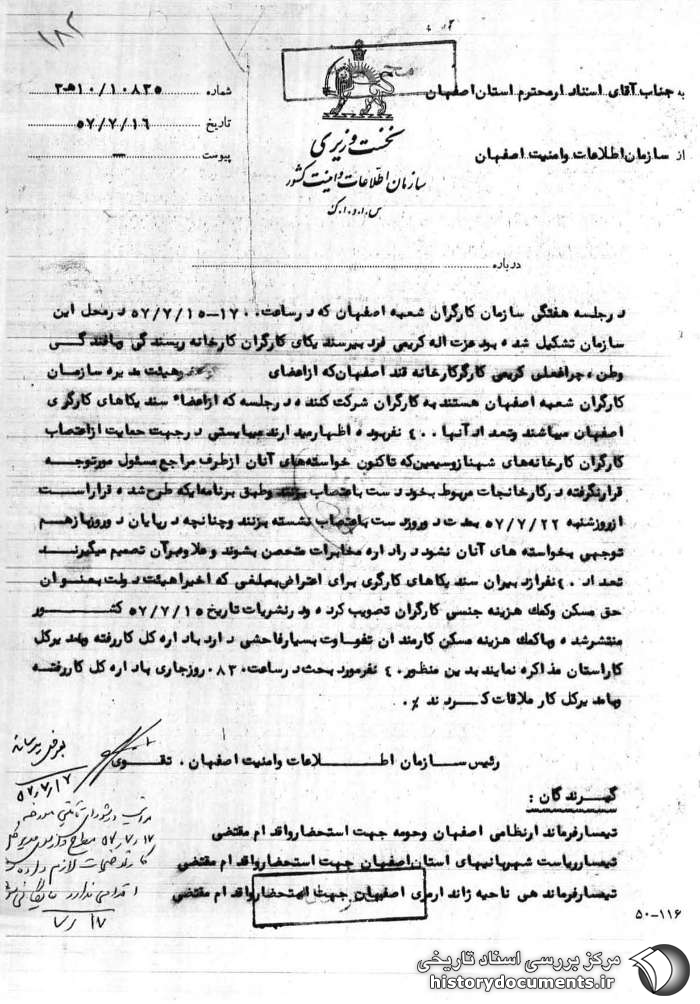 ۱۸۲
به جناب آقای استاندار محترم استان اصفهان
از سازمان اطلاعات و امنیت اصفهان
نخست وزیری
سازمان اطلاعات و امنیت کشور
س.ا.و.ا.ک
شماره ۱۰۸۳۵/۱۰ﻫ۳
تاریخ ۵۷/۷/۱۶
پیوست —
درباره
در جلسه هفتگی سازمان کارگران شعبه اصفهان که در ساعت ۱۷۰۰-۵۷/۷/۱۵ در محل این
سازمان تشکیل شده بود عزت اله کریمی فرد دبیر سندیکای کارگران کارخانه ریسندگی و بافندگی
وطن، چراغعلی کریمی کارگر کارخانه قند اصفهان که از اعضای هیئت مدیره سازمان
کارگران شعبه اصفهان هستند به کارگران شرکت کننده در جلسه که از اعضاء سندیکاهای کارگری
اصفهان میباشند و تعداد آنها ۴۰۰ نفر بوده اظهار میدارند میبایستی در جهت حمایت از اعتصاب
کارگران کارخانه‌های شهناز و سیمین که تاکنون خواسته‌های آنان از طرف مراجع مسئول مورد توجه
قرار نگرفته در کارخانجات مربوط بخود دست باعتصاب بزنند و طبق برنامه‌ایکه طرح شده قرار است
از روز شنبه ۵۷/۷/۲۲ بمدت دو روز دست باعتصاب نشسته بزنند و چنانچه در پایان دو روز باز هم
توجهی بخواسته های آنان نشود در اداره مخابرات متحصن بشوند و علاوه بر آن تصمیم میگیرند
تعداد ۴۰ نفر از دبیران سندیکاهای کارگری برای اعتراض بمبلغی که اخیرا هیئت دولت بعنوان
حق مسکن و کمک هزینه جنسی کارگران تصویب کرده و در نشریات تاریخ ۵۷/۷/۱۵ کشور
منتشر شده و با کمک هزینه مسکن کارمندان تفاوت بسیار فاحشی دارد باداره کل کار رفته و با مدیرکل
کار استان مذاکره نمایند بدین منظور ۴۰ نفر مورد بحث در ساعت ۰۸۳۰ روز جاری باداره کل کار رفته
و با مدیرکل کار ملاقات کردند ٪
رئیس سازمان اطلاعات و امنیت اصفهان . تقوی
گیرندگان :
تیمسار فرماندار نظامی اصفهان و حومه جهت استحضار و اقدام مقتضی
تیمسار ریاست شهربانیهای استان اصفهان جهت استحضار و اقدام مقتضی
تیمسار فرماندهی ناحیه ژاندارمری اصفهان جهت استحضار و اقدام مقتضی
۵۰-۱۱۶
بعرض برسانید
۵۷/۷/۱۷
مرکز بررسی اسناد تاریخی
historydocuments.ir